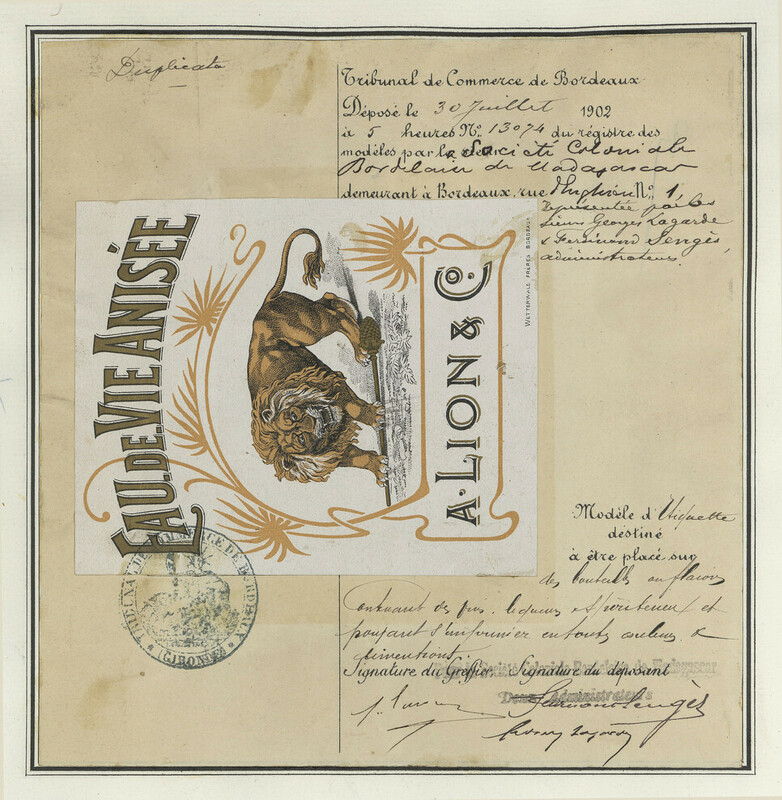 Duplicata
Tribunal de Commerce de Bordeaux
Déposé le 30 Juillet 1902
à 5 heures No. 13074 du régistre des
modèles par la Société Coloniale
Bordelaise de Madagascar
demeurant à Bordeaux, rue No. 1
représentée par les
sieurs Georges Lagarde
& Ferdinand Sengès,
administrateurs.
EAU.DE.VIE ANISÉE
A. LION & Co.
WETTERWALD FRÈRES BORDEAUX
Modèle d'Etiquette
destiné
à être placé sur
des bouteilles ou flacons
Contenant des vins, liqueurs et spiritueux et
pouvant s'imprimer en toutes couleurs &
dimensions.
Signature du Greffier, Signature du déposant
Société Coloniale Bordelaise de Madagascar
Deux Administrateurs
TRIBUNAL DE COMMERCE DE BORDEAUX
(GIRONDE)